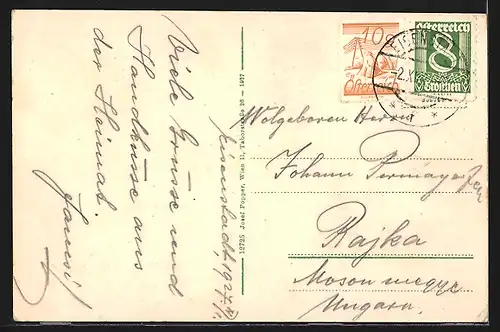 Viele Grüsse und
Handküsse aus
der Heimat.
Jansi
Eisenstadt, 1927.
12725 Josef Popper, Wien II, Taborstraße 26 - 1927
10
Österreich
Österreich
8
Groschen
EISEN
-2.X
Wolgeboren Herrn
Johann
Rajka
Moson megye
Ungarn.